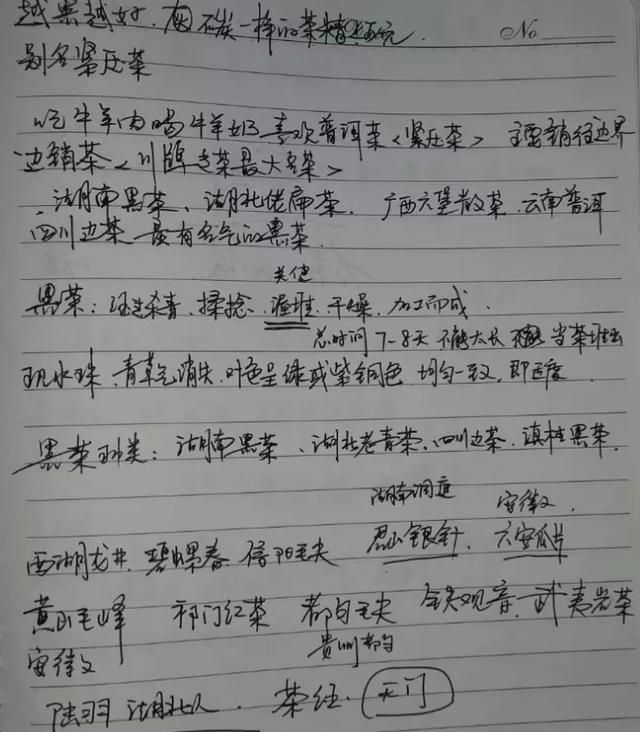 越黑越好.
No
别名紧压茶
吃牛羊肉喝牛羊奶喜欢普洱茶<紧压茶> 主要销往边界
边销茶<川牌边茶最大名茶>
湖南黑茶、湖北佬扁茶. 广西六堡散茶.云南普洱
四川边茶 最有名气的黑茶
关键
黑茶:经过杀青、揉捻、渥堆、干燥、加工而成.
总时间 7-8天 不能太长 当茶堆出
现水珠、青草气消失、叶色呈绿或紫铜色 均匀一致,即适度
黑茶种类:湖南黑茶、湖北老青茶、四川边茶、滇桂黑茶.
湖南洞庭 安徽
西湖龙井 碧螺春 信阳毛尖 君山银针. 六安瓜片
黄山毛峰 祁门红茶 都匀毛尖 铁观音 武夷岩茶
安徽 贵州都匀
陆羽 湖北人. 茶经. 天门